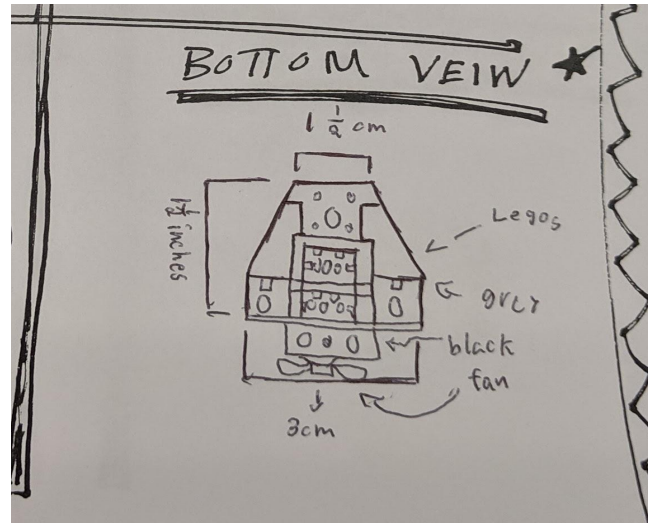 BOTTOM VEIW
1 1/2 cm
1 1/2 inches
Legos
grey
black
fan
3cm